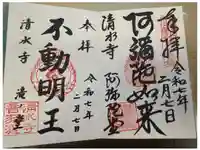 奉拝
令和七年
二月七日
阿弥陀如来
清水寺
阿弥陀堂
奉拝
令和七年
二月七日
不動明王
清水寺